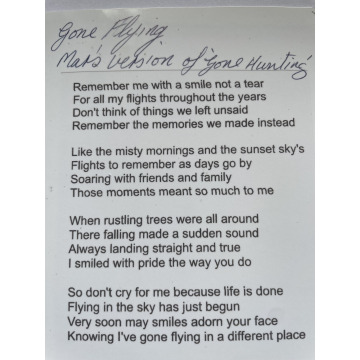 Gone Flying
Mar's version of 'Gone Hunting'
Remember me with a smile not a tear
For all my flights throughout the years
Don't think of things we left unsaid
Remember the memories we made instead
Like the misty mornings and the sunset sky's
Flights to remember as days go by
Soaring with friends and family
Those moments meant so much to me
When rustling trees were all around
There falling made a sudden sound
Always landing straight and true
I smiled with pride the way you do
So don't cry for me because life is done
Flying in the sky has just begun
Very soon may smiles adorn your face
Knowing I've gone flying in a different place